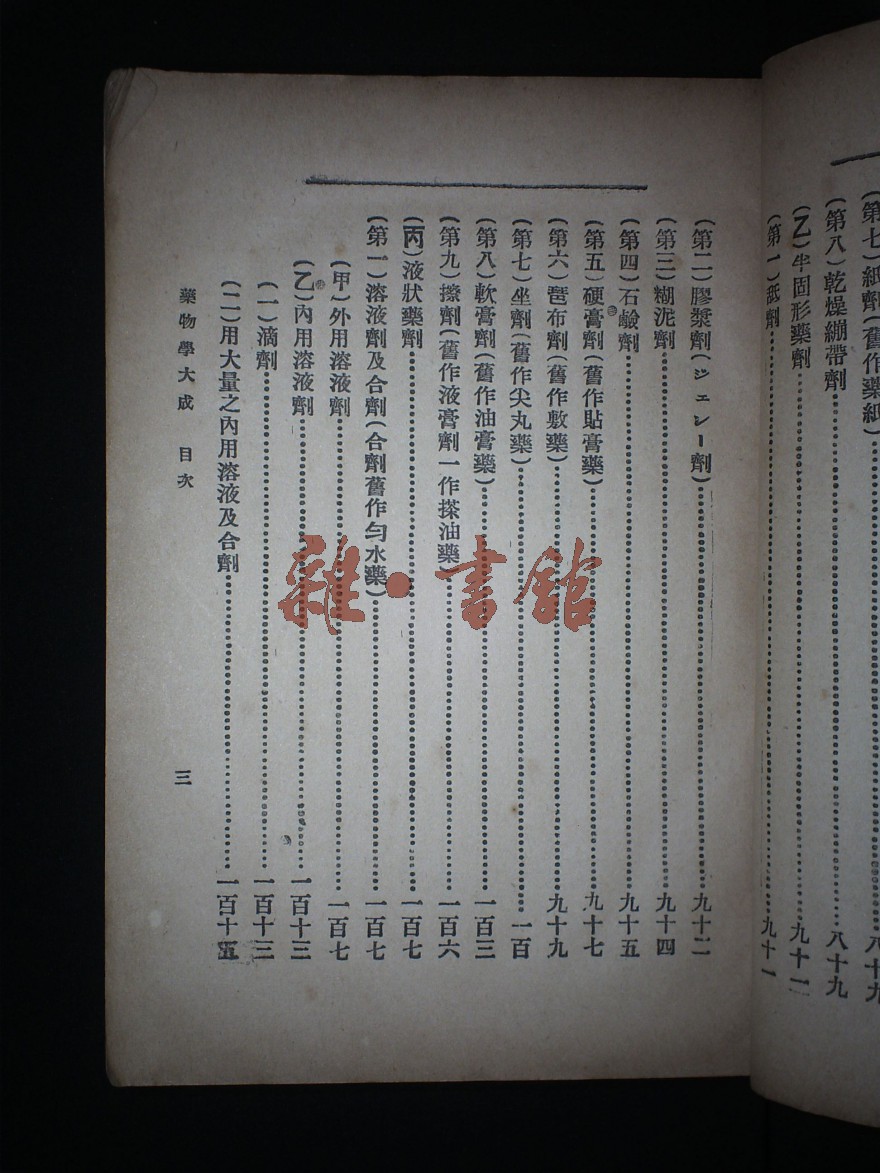 (第七)紙劑(舊作藥紙)……八十九
(第八)乾燥繃帶劑……八十九
(乙)半固形藥劑……九十一
(第一)舐劑……九十一
(第二)膠漿劑(ジェレー劑)……九十二
(第三)糊泥劑……九十四
(第四)石鹼劑……九十五
(第五)硬膏劑(舊作貼膏藥)……九十七
(第六)琶布劑(舊作敷藥)……九十九
(第七)坐劑(舊作尖丸藥)……一百
(第八)軟膏劑(舊作油膏藥)……一百三
(第九)擦劑(舊作液膏劑一作搽油藥)……一百六
(丙)液狀藥劑……一百七
(第一)溶液劑及合劑(合劑舊作勻水藥)……一百七
(甲)外用溶液劑……一百七
(乙)內用溶液劑……一百十三
(一)滴劑……一百十三
(二)用大量之內用溶液及合劑……一百十五
藥物學大成 目次
三
雜·書館